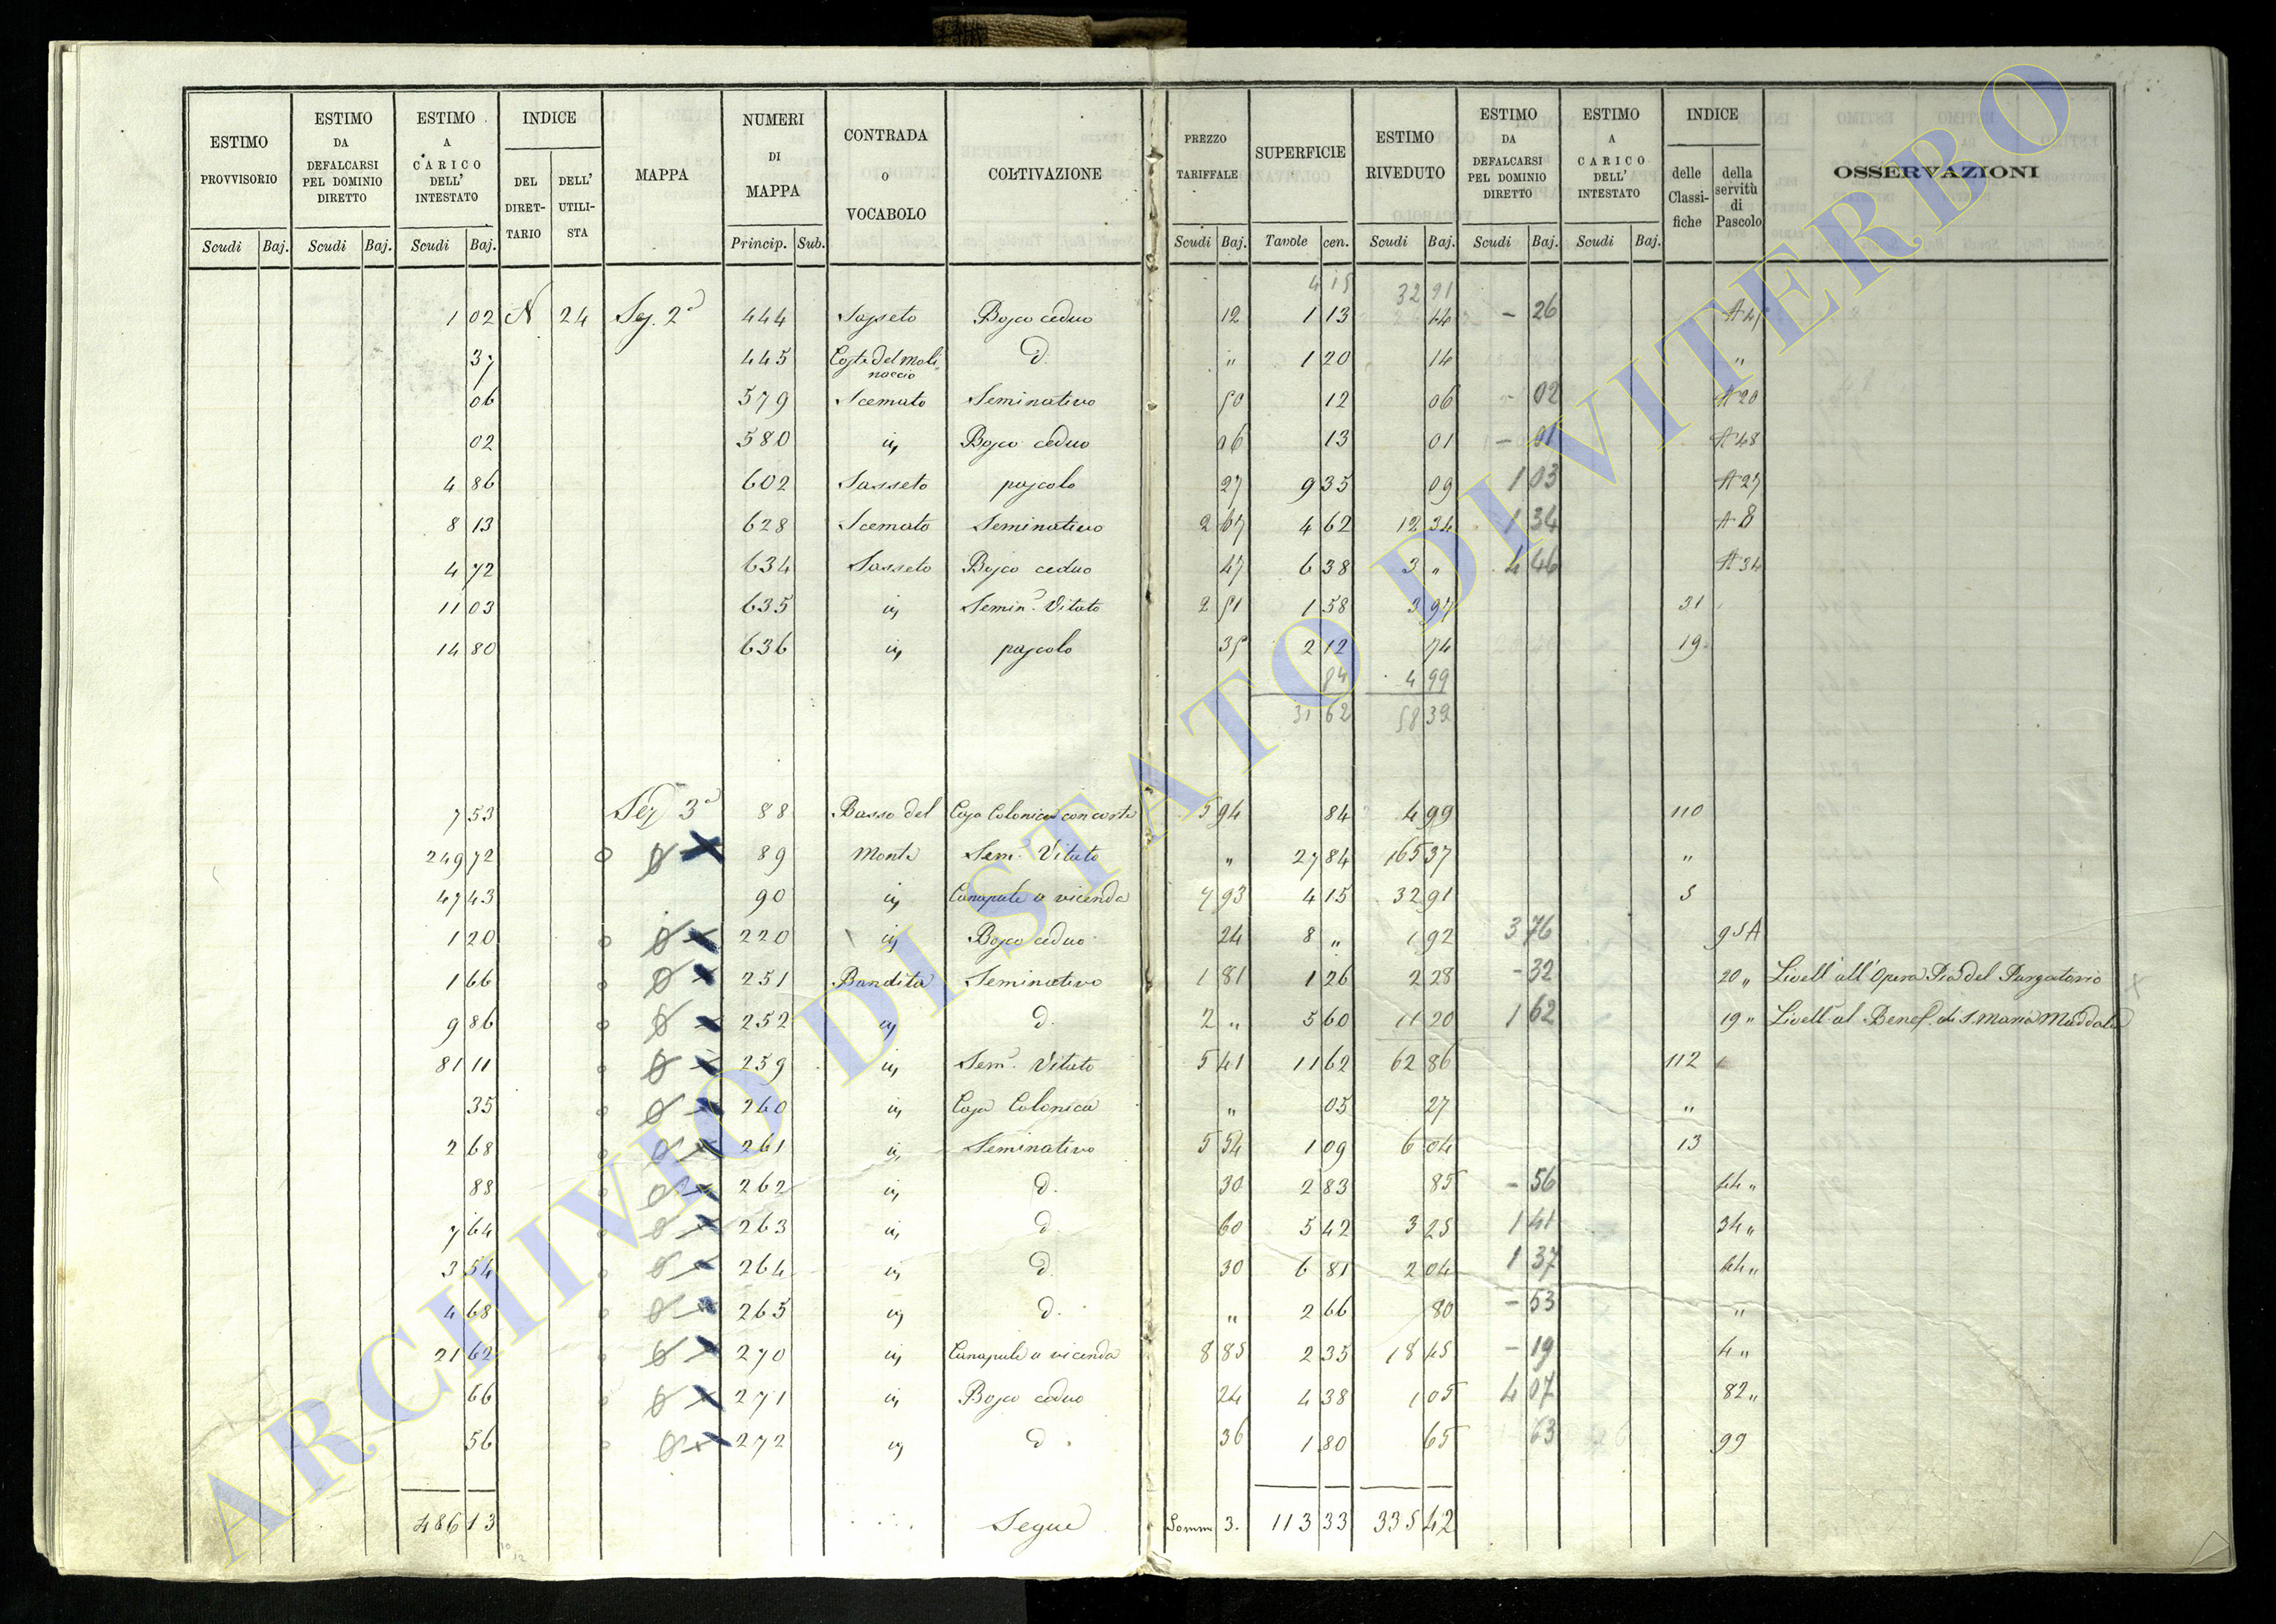 ESTIMO PROVVISORIO | ESTIMO DA DEFALCARSI PEL DOMINIO DIRETTO | ESTIMO A CARICO DELL' INTESTATO | INDICE DEL DIRET- TARIO | DELL' UTILI- STA | MAPPA | NUMERI DI MAPPA | CONTRADA O VOCABOLO | COLTIVAZIONE | PREZZO TARIFFALE | SUPERFICIE | ESTIMO RIVEDUTO | ESTIMO DA DEFALCARSI PEL DOMINIO DIRETTO | ESTIMO A CARICO DELL' INTESTATO | INDICE delle Classi- fiche | della servitù di Pascolo | OSSERVAZIONI
Scudi Baj. | Scudi Baj. | Scudi Baj. | Princip. Sub. | Scudi Baj. | Tavole cen. | Scudi Baj. | Scudi Baj. | Scudi Baj.
4 15 | 32 91
1 02 | N | 24 | Sez. 2a | 444 | Sasseto | Bosco ceduo | 12 | 1 13 | 14 | – 26
37 | 445 | Coste del Moli- | d. | " | 1 20 | 14 | "
naccio
06 | 579 | Scemato | Seminativo | 50 | 12 | 06 | – 02 | A 20
02 | 580 | ivi | Bosco ceduo | 06 | 13 | 01 | – 01 | A 48
4 86 | 602 | Sasseto | pascolo | 27 | 9 35 | 09 | 1 03 | A 27
8 13 | 628 | Scemato | Seminativo | 2 67 | 4 62 | 12 34 | 1 34 | A 8
4 72 | 634 | Sasseto | Bosco ceduo | 47 | 6 38 | 3 " | 4 46 | A 34
11 03 | 635 | ivi | Semin.o Vitato | 2 51 | 1 58 | 3 97 | 31
14 80 | 636 | ivi | pascolo | 35 | 2 12 | 74 | 19
84 | 4 99
31 62 | 58 39
7 53 | Sez 3a | 88 | Basso del | Casa Colonica con corte | 5 94 | 84 | 4 99 | 110
249 72 | 89 | Monte | Sem.o Vitato | " | 27 84 | 165 37 | "
47 43 | 90 | ivi | Canapule a vicenda | 7 93 | 4 15 | 32 91 | 5
1 20 | 220 | ivi | Bosco ceduo | 24 | 8 " | 1 92 | 3 76 | 95 A
1 66 | 251 | Bandita | Seminativo | 1 81 | 1 26 | 2 28 | – 32 | 20 " | Livell.o all'Opera Pia del Purgatorio
9 86 | 252 | ivi | d. | 2 " | 5 60 | 11 20 | 1 62 | 19 " | Livell.o al Benef. di S. Maria Maddala
81 11 | 259 | ivi | Sem.o Vitato | 5 41 | 11 62 | 62 86 | 112
35 | 260 | ivi | Casa Colonica | " | 05 | 27 | "
2 68 | 261 | ivi | Seminativo | 5 54 | 1 09 | 6 04 | 13
88 | 262 | ivi | d. | 30 | 2 83 | 85 | – 56 | 44 "
7 64 | 263 | ivi | d. | 60 | 5 42 | 3 25 | 1 41 | 34 "
3 54 | 264 | ivi | d. | 30 | 6 81 | 2 04 | 1 37 | 44 "
4 68 | 265 | ivi | d. | " | 2 66 | 80 | – 53 | "
21 62 | 270 | ivi | Canapule a vicenda | 8 85 | 2 35 | – 19 | 4 "
66 | 271 | ivi | Bosco ceduo | 24 | 4 38 | 1 05 | 4 07 | 82 "
56 | 272 | ivi | d. | 36 | 1 80 | 65 | 63 | 99
486 13 | Segue | Somma 3. | 113 33 | 335 42
ARCHIVIO DI STATO DI VITERBO